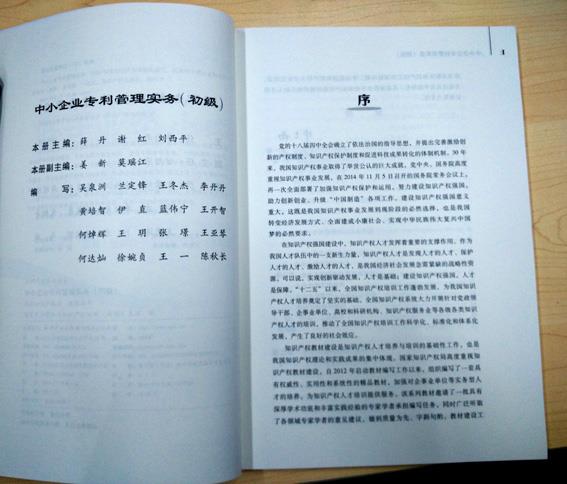 中小企业专利管理实务(初级)
本册主编：薛丹 谢红 刘西平
本册副主编：姜新 莫瑶江
编 写：吴泉洲 兰定锋 王冬杰 李丹丹
黄培智 伊直 蓝伟宁 王开智
何焯辉 王玥 张璟 王亚琴
何达灿 徐婉贞 王一 陈秋长
1
序
党的十八届四中全会确立了依法治国的指导思想，并提出完善激励创
新的产权制度、知识产权保护制度和促进科技成果转化的体制机制。30年
来，我国知识产权事业取得了举世公认的巨大成就。党中央、国务院高度
重视知识产权事业发展，在2014年11月5日召开的国务院常务会议上，
再一次全面部署了加强知识产权保护和运用、努力建设知识产权强国，
助力创新创业、升级“中国制造”各项工作。建设知识产权强国意义
重大，这既是我国知识产权事业发展到现阶段的必然选择，也是我国
转变经济发展方式、全面建成小康社会、实现中华民族伟大复兴中国
梦的必然要求。
在知识产权强国建设中，知识产权人才发挥着重要的支撑作用。作为
我国人才队伍中的一支新生力量，知识产权人才是发现人才的人才、保护
人才的人才、激励人才的人才，是我国经济社会发展急需紧缺的战略性资
源。可以说，实现创新驱动发展，人才是基础；建设知识产权强国，人才
是保障。“十二五”以来，全国知识产权培训工作蓬勃发展，为我国知识
产权人才培养奠定了坚实的基础。全国知识产权系统大力开展针对党政领
导干部、企事业单位、高校和科研机构、知识产权服务业等各级各类知识
产权人才的培训，推动了全国知识产权培训工作科学化、标准化和体系化
发展，产生了良好的社会效应。
知识产权教材建设是知识产权人才培养与培训的基础性工作，也是
我国知识产权理论和实践成果的集中体现。国家知识产权局高度重视知
识产权教材建设，自2012年启动教材编写工作以来，组织编写了一套具
有权威性、实用性和系统性的精品教材，加强对企事业单位等实务型人
才的培养，为知识产权人才培训提供服务。该系列教材邀请了一批具有
深厚学术功底和丰富实践经验的专家学者承担编写任务，同时广泛听取
了各领域专家学者的意见建议，做到质量为先、字斟句酌。教材建设工